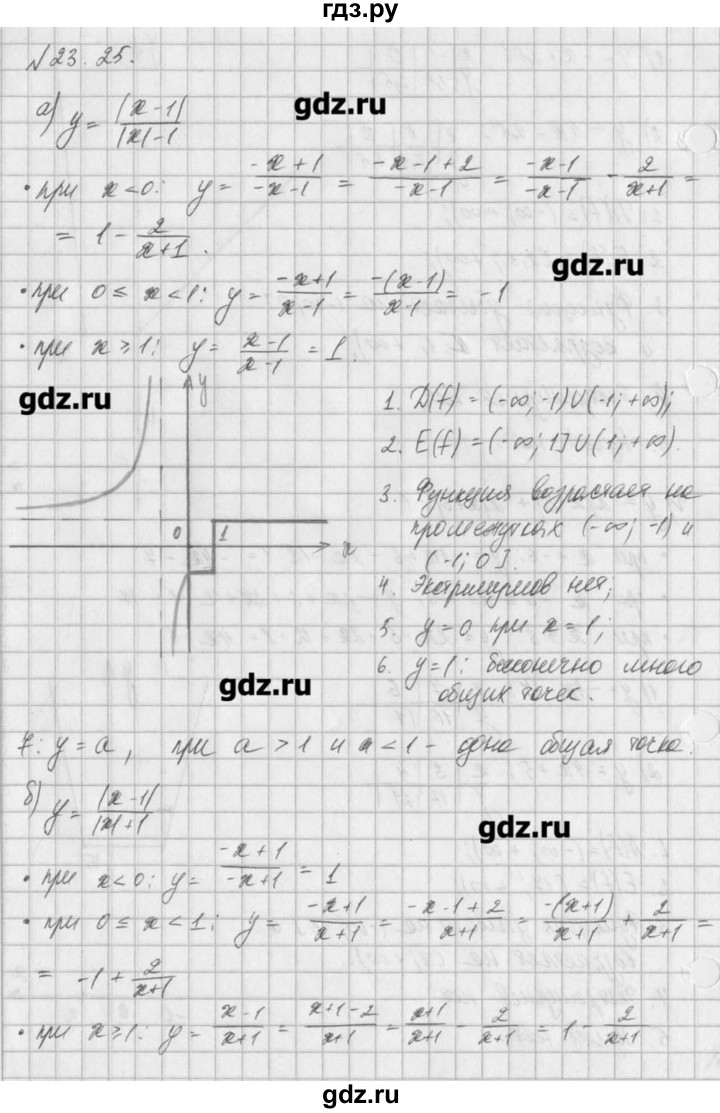 гдз.ру
№23.25.
gdz.ru
а) y = |x-1| / |x|-1
• при x<0: y = -x+1 / -x-1 = -x-1+2 / -x-1 = -x-1 / -x-1 - 2 / x+1 =
= 1 - 2 / x+1.
gdz.ru
• при 0 ≤ x < 1: y = -x+1 / x-1 = -(x-1) / x-1 = -1
• при x ≥ 1: y = x-1 / x-1 = 1.
gdz.ru
y
0 1 x
1. D(f) = (-∞; -1)∪(-1; +∞);
2. E(f) = (-∞; 1]∪(1; +∞).
3. Функция возрастает на
промежутках (-∞; -1) и
(-1; 0].
4. Экстримумов нет;
5. y=0 при x=1;
6. y=1: бесконечно много
общих точек.
gdz.ru
7: y=a, при a>1 и a<1 - одна общая точка.
б) y = |x-1| / |x|+1
gdz.ru
• при x<0: y = -x+1 / -x+1 = 1
• при 0 ≤ x < 1: y = -x+1 / x+1 = -x-1+2 / x+1 = -(x+1) / x+1 + 2 / x+1 =
= -1 + 2 / x+1
• при x ≥ 1: y = x-1 / x+1 = x+1-2 / x+1 = x+1 / x+1 - 2 / x+1 = 1 - 2 / x+1
gdz.ru